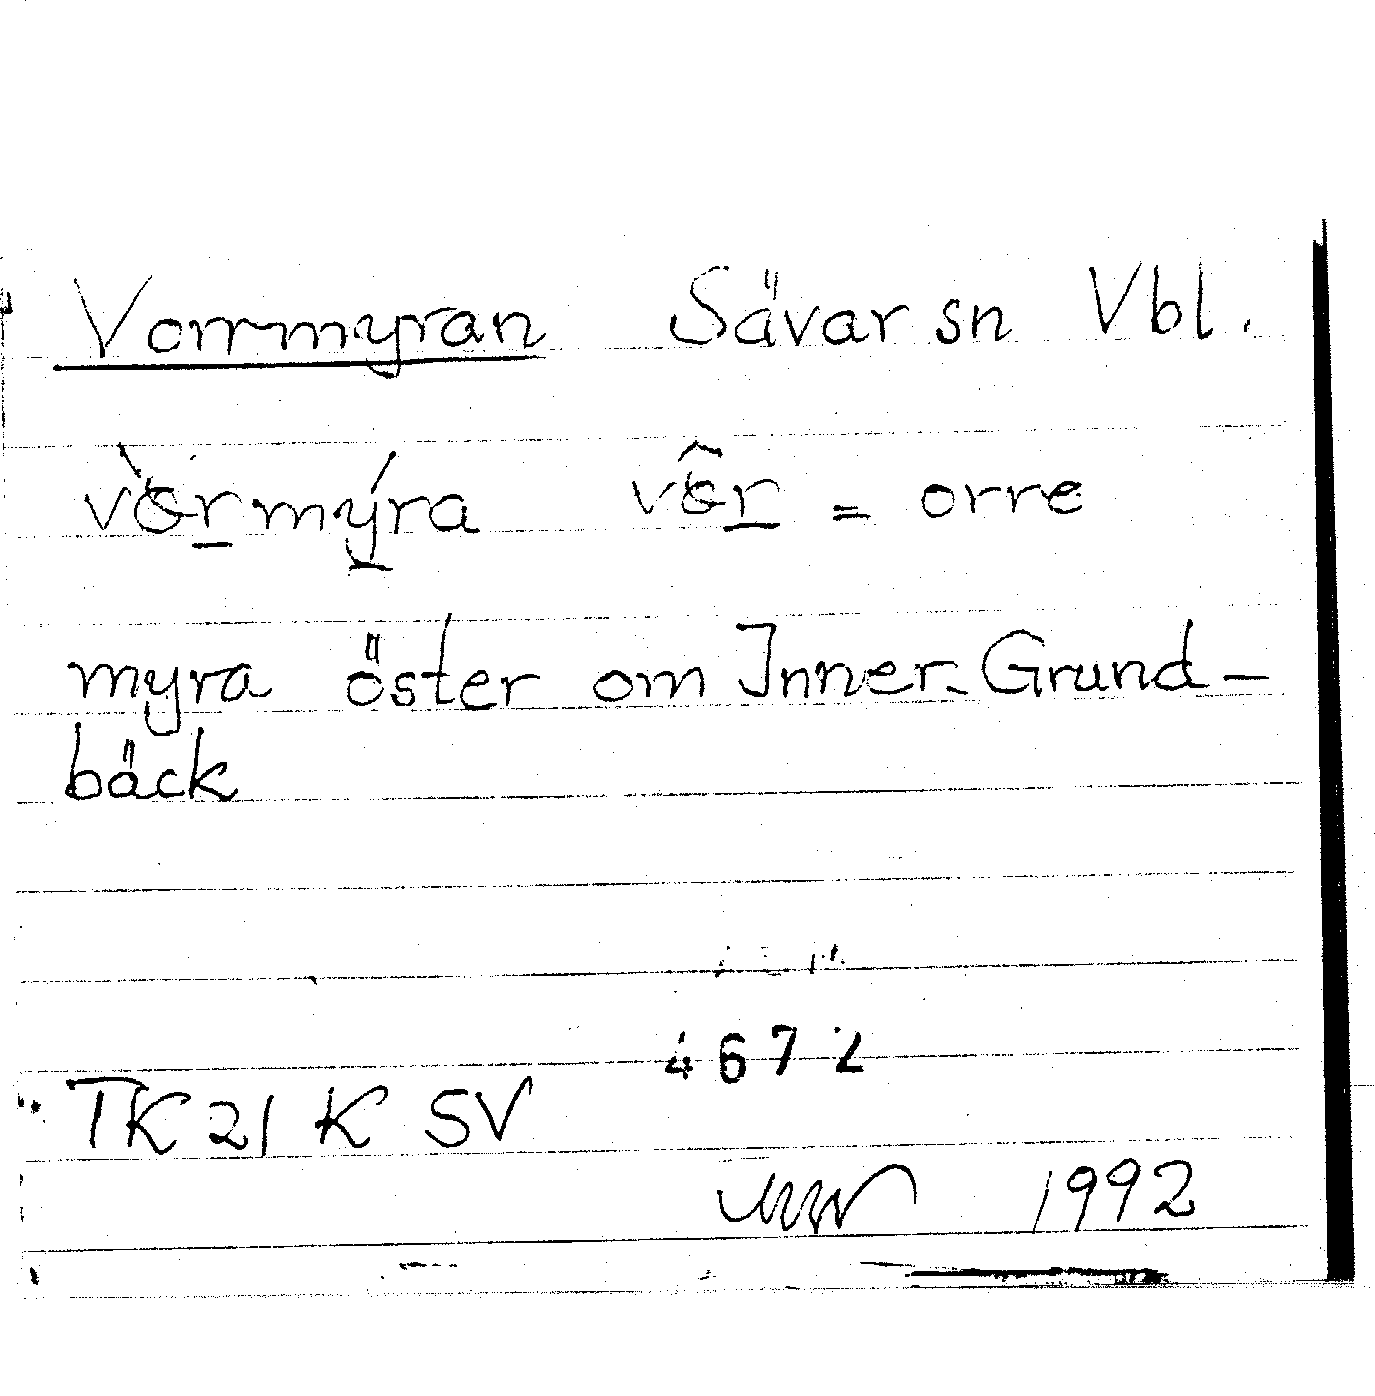 Vorrmyran Sävar sn Vbl.
vòrmýra vôr = orre
myra öster om Inner-Grund-
bäck
4672
TK 21 K SV
1992